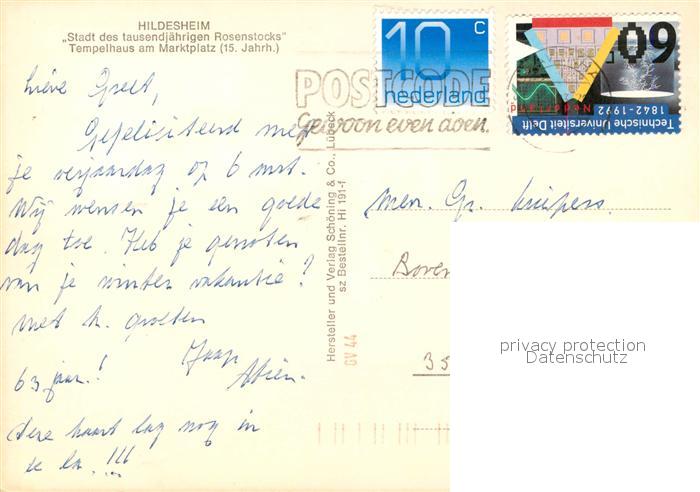 HILDESHEIM
„Stadt des tausendjährigen Rosenstocks"
Tempelhaus am Marktplatz (15. Jahrh.)
Lieve Greet,
Gefelisiteerd met
je verjaardag op 6 mrt.
Wij wensen je een goede
dag toe. Heb je genoten
van je winter vakantie?
met h. groeten
Jaap
63 jaar.!
Deze kaart lag nog in
de la. !!!
Hersteller und Verlag Schöning & Co., Lübeck
sz Bestellnr. Hi 191-f
GV 44
POSTCODE
Gewoon even doen.
10 c
nederland
60
Nederland
Technische Universiteit Delft
1842-1992
Mevr. Gr. Kuipers.
Boven
35
privacy protection
Datenschutz